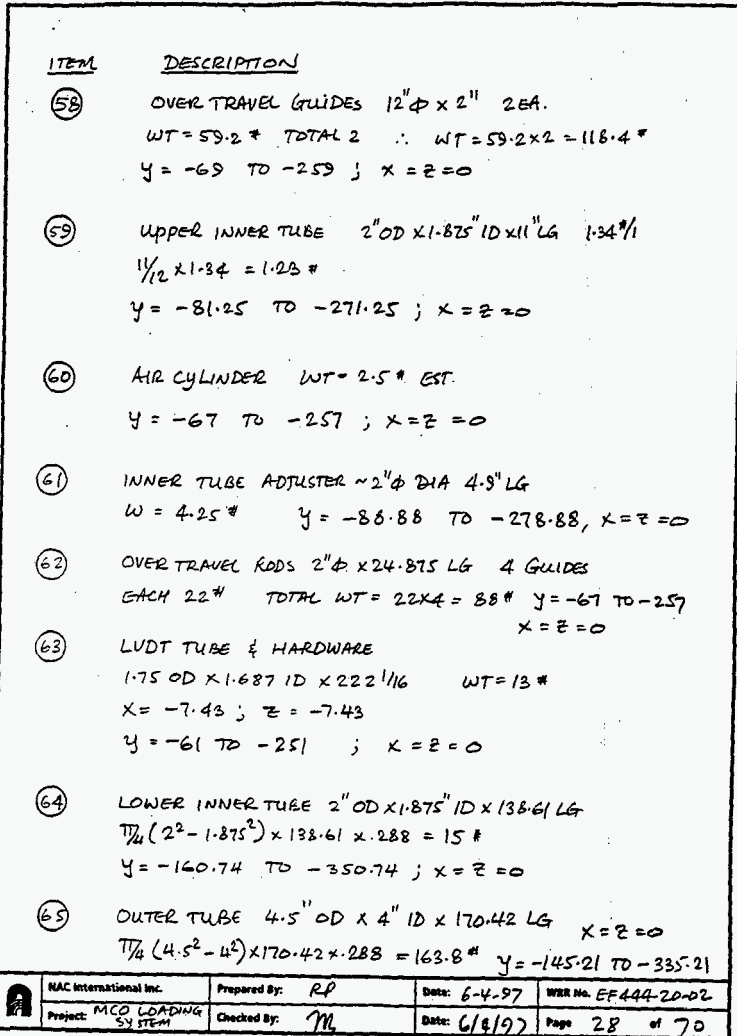 ITEM DESCRIPTION
58 OVER TRAVEL GUIDES 12"Φ x 2" 2 EA.
WT = 59.2 # TOTAL 2 ∴ WT = 59.2x2 = 118.4 #
y = -69 TO -259 ; x = z = 0
59 UPPER INNER TUBE 2"OD x 1.875" ID x 11" LG 1.34#/1
11/12 x 1.34 = 1.23 #
y = -81.25 TO -271.25 ; x = z = 0
60 AIR CYLINDER WT - 2.5 # EST.
y = -67 TO -257 ; x = z = 0
61 INNER TUBE ADJUSTER ~2"Φ DIA 4.9" LG
W = 4.25 # y = -88.88 TO -278.88, x = z = 0
62 OVER TRAVEL RODS 2"Φ x 24.875 LG 4 GUIDES
EACH 22# TOTAL WT = 22x4 = 88# y = -67 TO -257
x = z = 0
63 LVDT TUBE & HARDWARE
1.75 OD x 1.687 ID x 222 1/16 WT = 13 #
x = -7.43 ; z = -7.43
y = -61 TO -251 ; x = z = 0
64 LOWER INNER TUBE 2"OD x 1.875" ID x 138.61 LG
π/4 (2² - 1.875²) x 138.61 x .288 = 15 #
y = -160.74 TO -350.74 ; x = z = 0
65 OUTER TUBE 4.5" OD x 4" ID x 170.42 LG x = z = 0
π/4 (4.5² - 4²) x 170.42 x .288 = 163.8 # y = -145.21 TO -335.21
NAC International Inc. Prepared By: RP Date: 6-4-97 WRR No. EF444-20-02
Project: MCO LOADING SYSTEM Checked By: Date: 6/9/97 Page 28 of 70